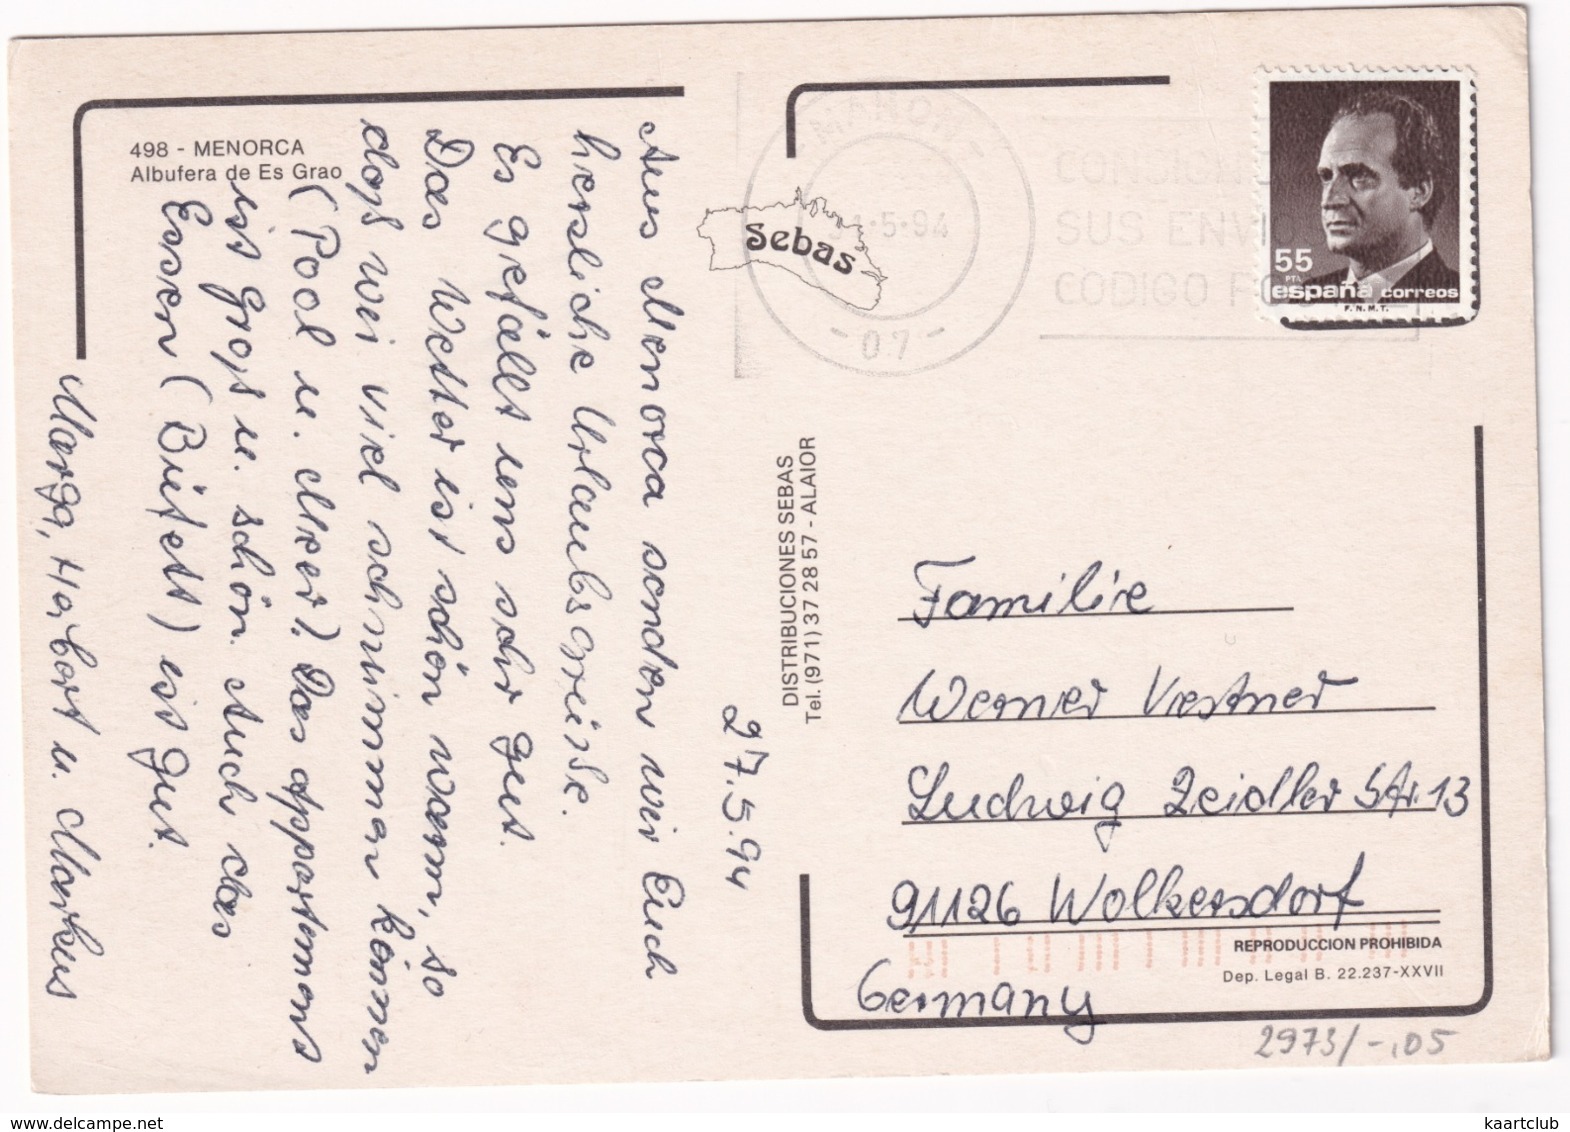 498 - MENORCA
Albufera de Es Grao
27.5.94
Aus Menorca senden wir Euch
herzliche Urlaubsgreise.
Es gefällt uns sehr gut.
Das Wetter ist schön warm, so
daß wir viel schwimmen können
(Pool u. Meer). Das Appartement
ist groß u. schön. Auch das
Essen (Büfett) ist gut.
Marga, Herbert u. Markus
Sebas
DISTRIBUCIONES SEBAS
Tel. (971) 37 28 57 - ALAIOR
MAHON
5-94
- 07 -
CONSIGNE
SUS ENVIOS
CODIGO POSTAL
55
PTA
españa correos
F.N.M.T.
Familie
Werner Vestner
Ludwig Zeidler Str. 13
91126 Wolkersdorf
Germany
REPRODUCCION PROHIBIDA
Dep. Legal B. 22.237-XXVII
2973/-,05
kaartclub
www.delcampe.net